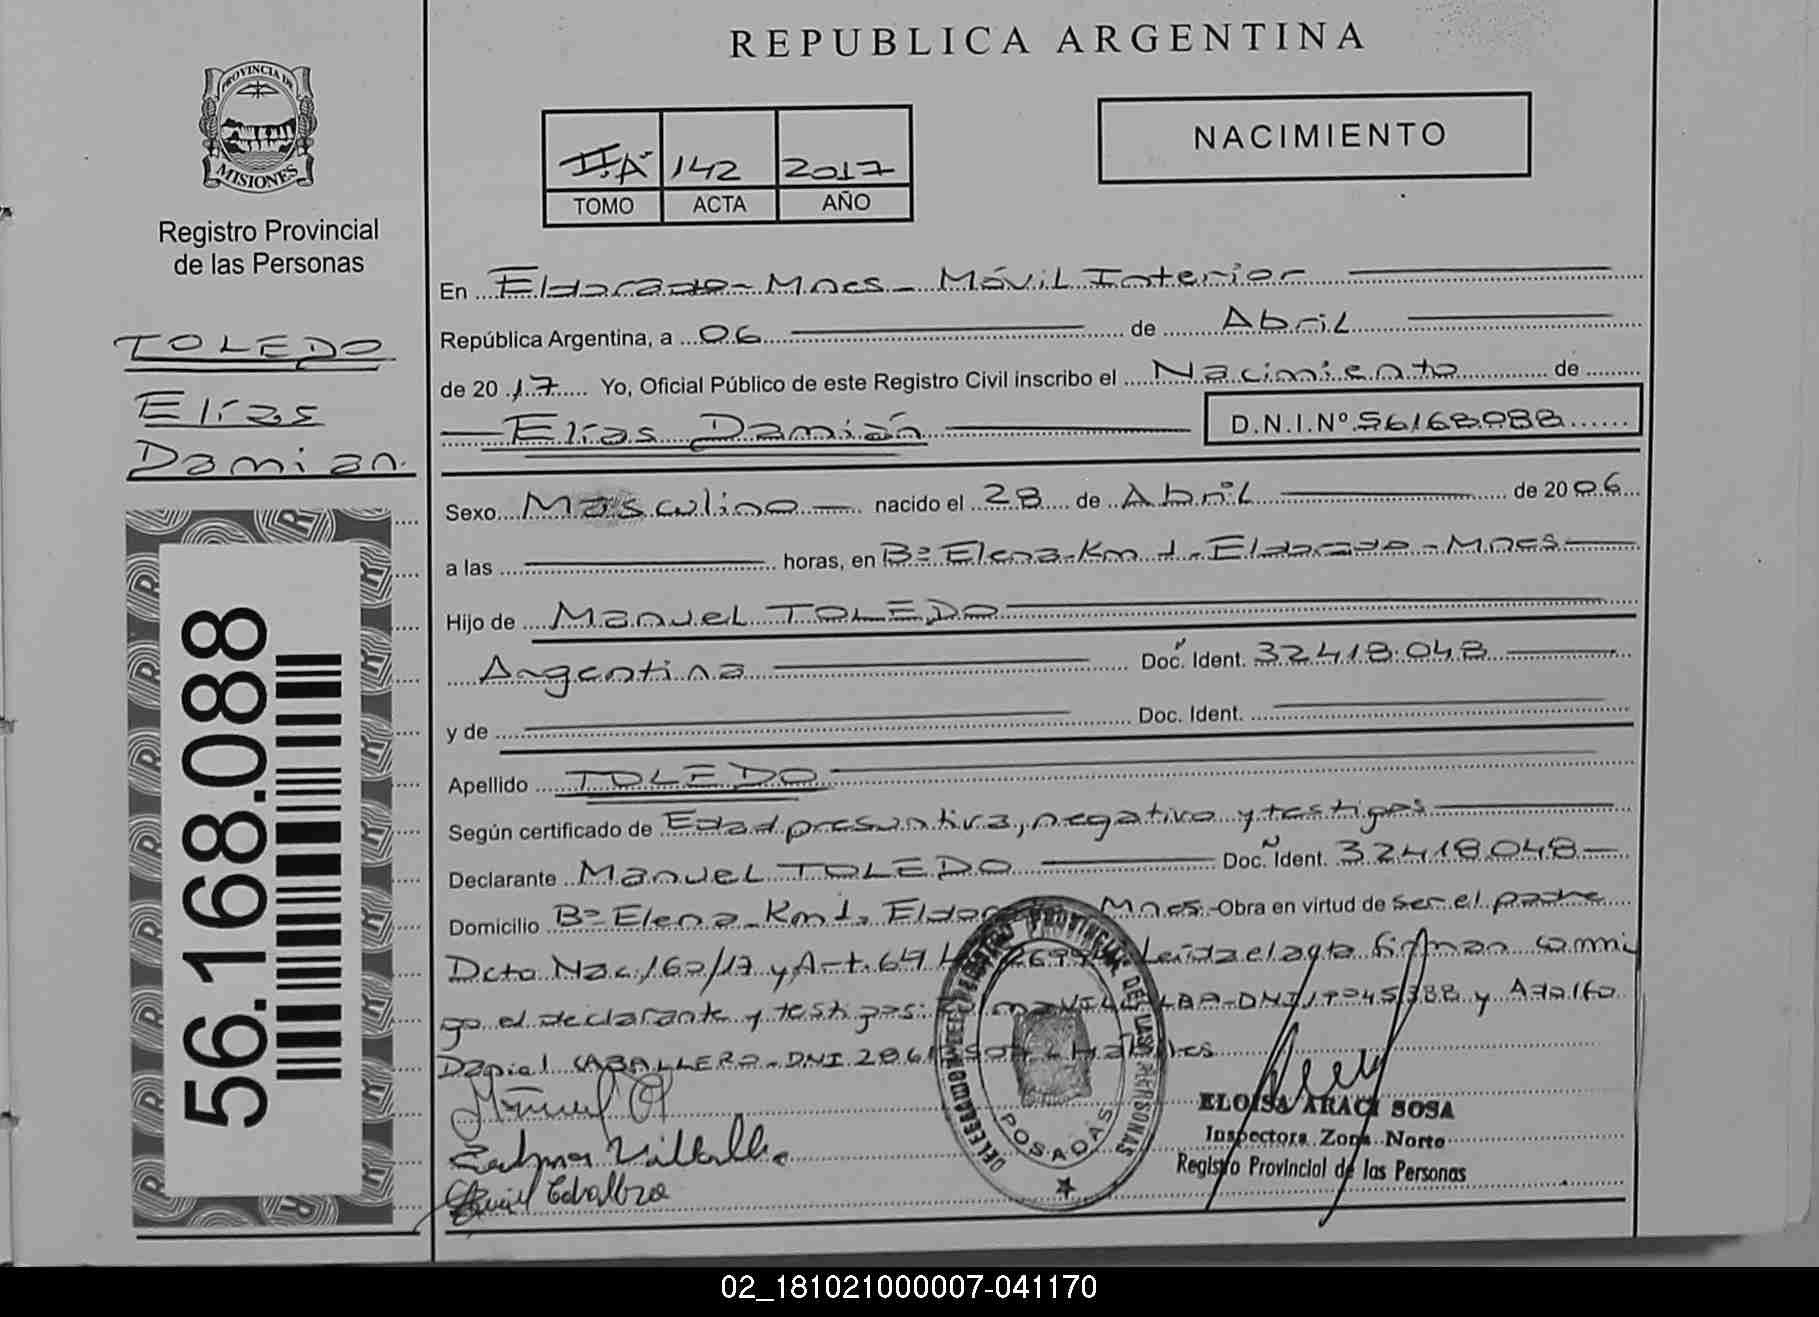 REPUBLICA ARGENTINA
PROVINCIA DE
MISIONES
Registro Provincial
de las Personas
TOLEDO
Elías
Damian.
56.168.088
II"A" 142 2017
TOMO ACTA AÑO
NACIMIENTO
En Eldorado - Mnes - Móvil Interior
República Argentina, a 06 de Abril
de 2017 Yo, Oficial Público de este Registro Civil inscribo el Nacimiento de
Elías Damián D.N.I.Nº 56168088
Sexo Masculino nacido el 28 de Abril de 2006
a las horas, en Bº Elena - Km 1 - Eldorado - Mnes
Hijo de Manuel TOLEDO
Argentina Doc. Ident. 32.418.048
y de Doc. Ident.
Apellido TOLEDO
Según certificado de Edad presuntiva, negativo y testigos
Declarante Manuel TOLEDO Doc. Ident. 32418048
Domicilio Bº Elena - Km 1 - Mnes - Obra en virtud de ser el padre
Dcto Nac. 160/17 y Art. 64 Leída el acta firman conmi
go el declarante y testigos: y Adolfo
Daniel CABALLERO - DNI
Manuel
Villalba
Daniel Caballero
REGISTRO PROVINCIAL DE LAS PERSONAS
POSADAS
ELOISA ARACI SOSA
Inspectora Zona Norte
Registro Provincial de las Personas
02_181021000007-041170